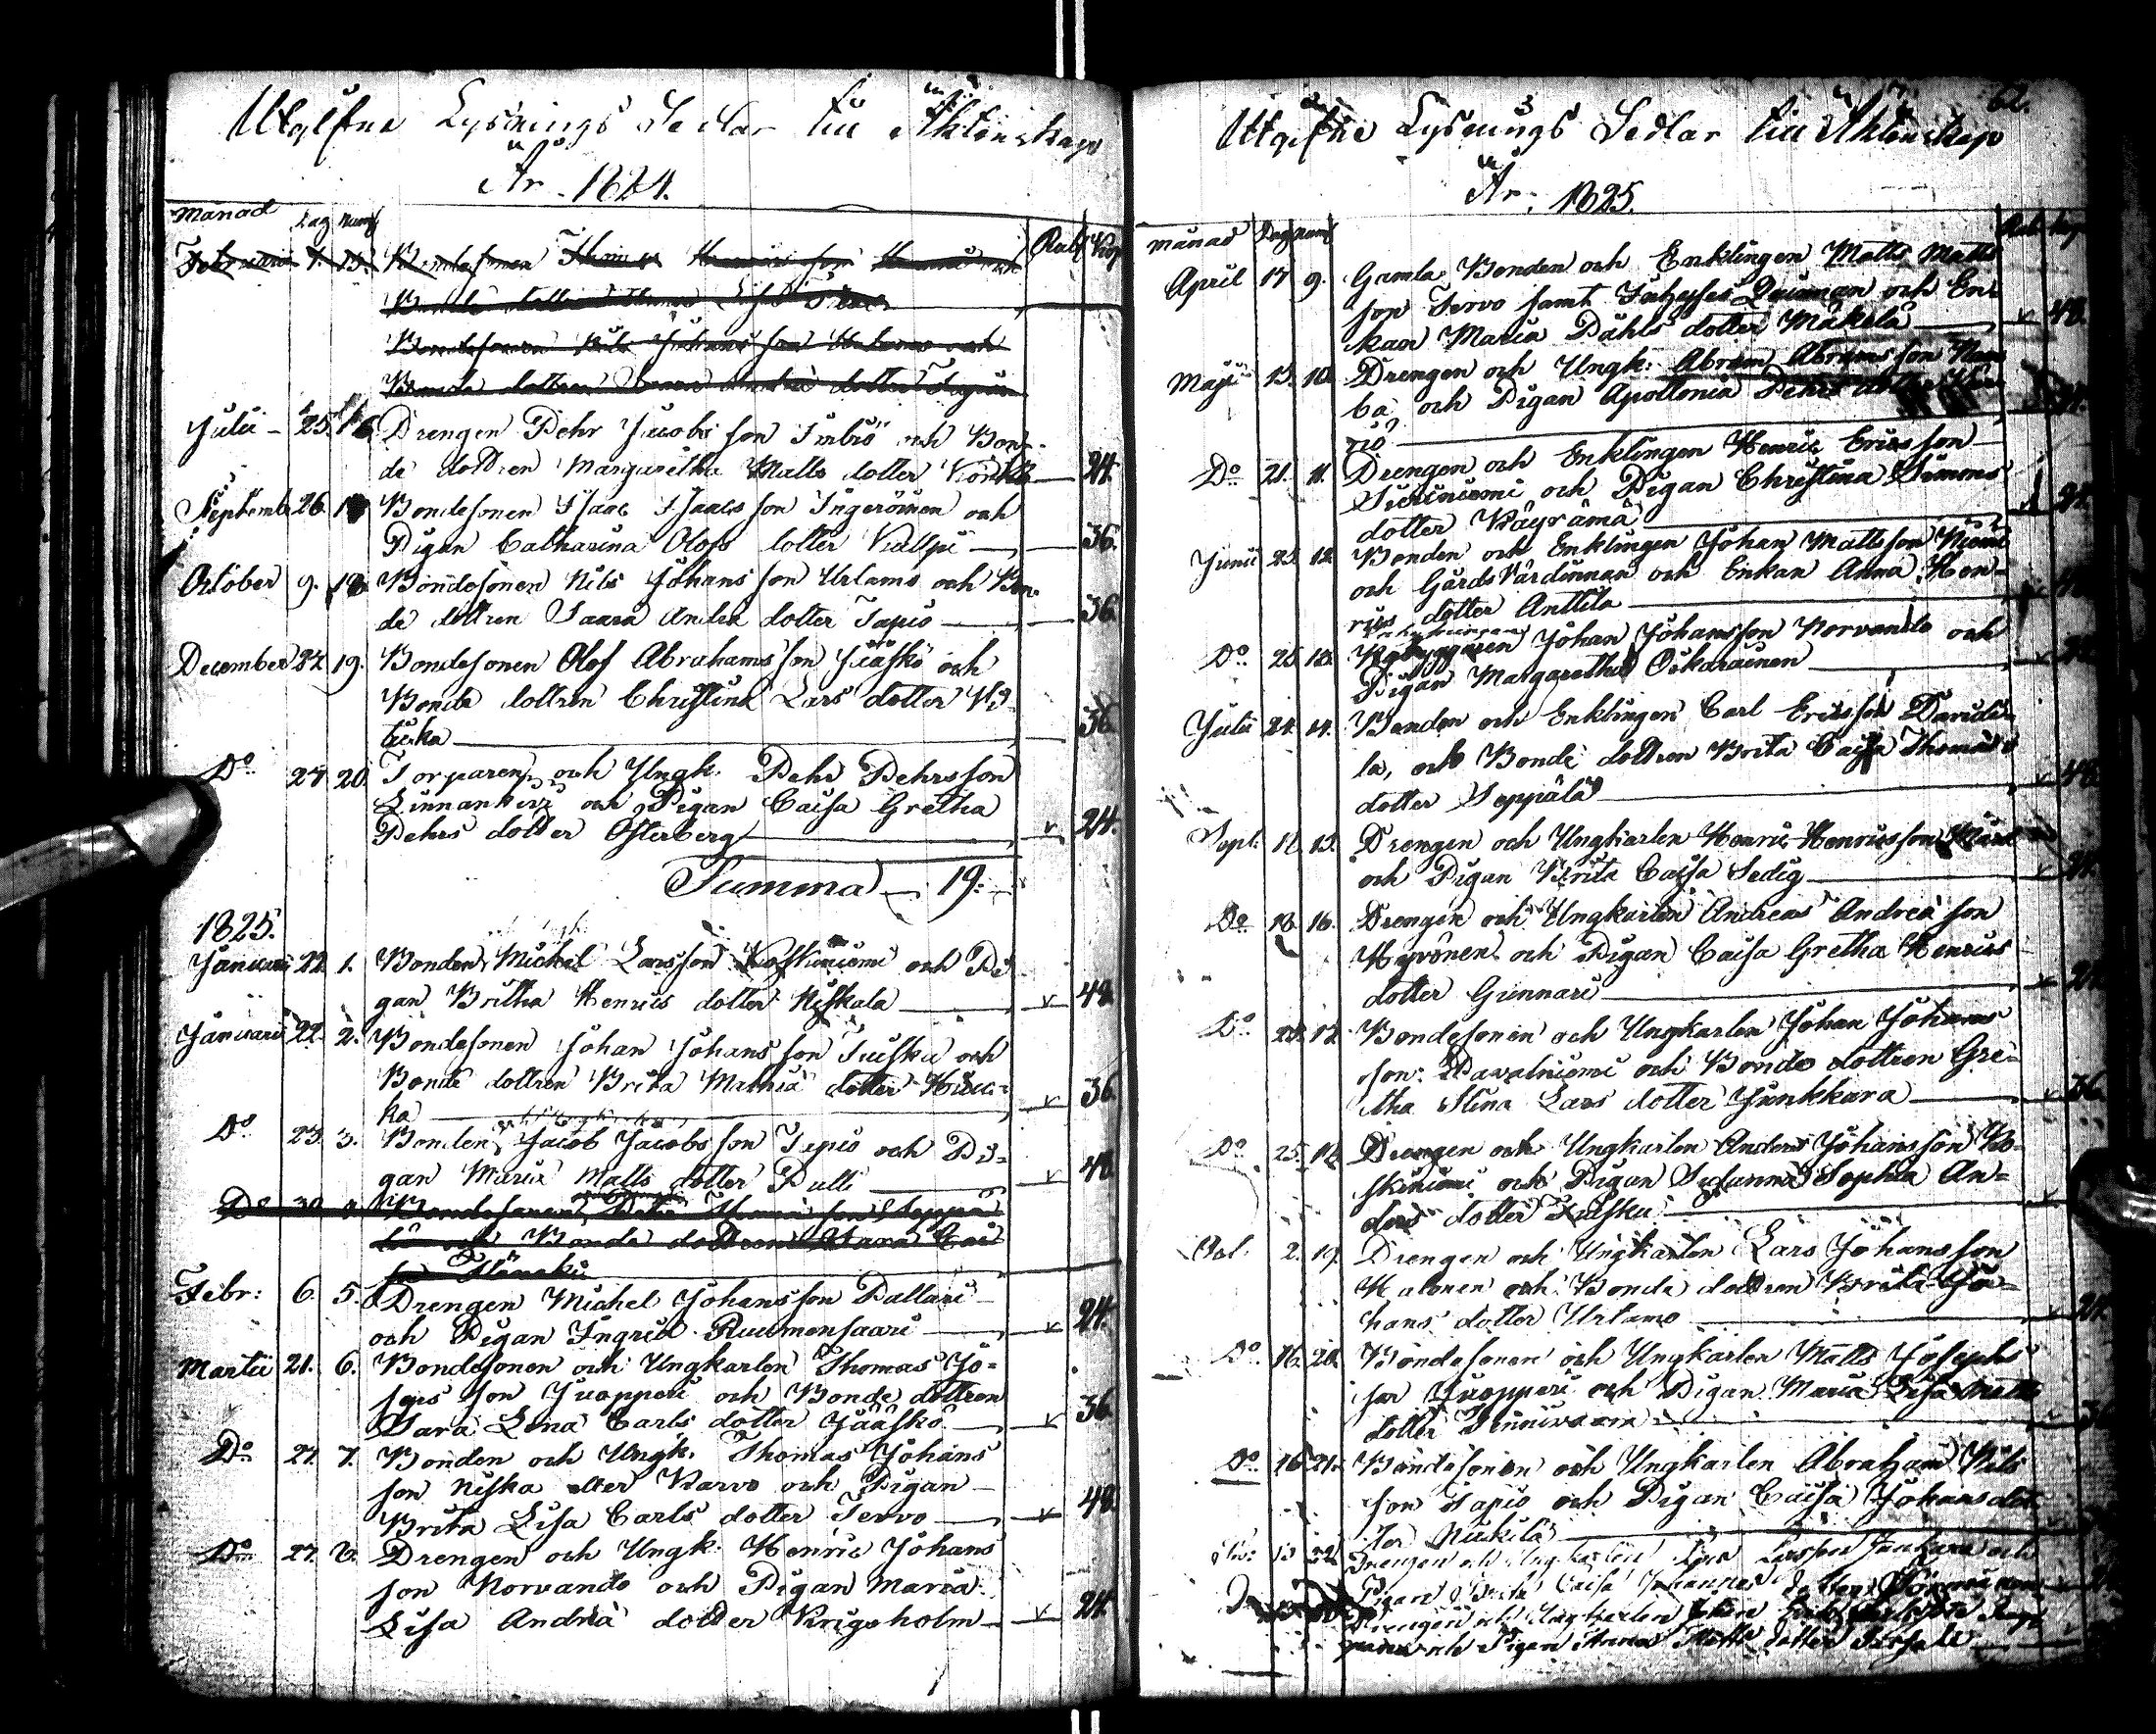 Utgifne Lysnings Sedlar till Äktenskap
År 1824.
Månad Dag Num Rub Kop
Februarii 1. 15. Bondesonen
Bondesonen Nils Johans son Urtamo och
Bonde dottren Saara Andreæ dotter Tapio
Julii 25. 16. Drengen Pehr Jacobs son och Bon-
de dottren Margaretha Matts dotter 24.
Septemb: 26. 17 Bondesonen Isaac Isaacs son Ingeröinen och
Pigan Catharina Olofs dotter 36.
October 9. 18. Bondesonen Nils Johans son Urtamo och Bon-
de dottren Saara Andreæ dotter Tapio 36.
December 27. 19. Bondesonen Olof Abrahams son Jääskö och
Bonde dottren Christina Lars dotter Vi-
tuka 36.
Do 27. 20. Torparen och Ungk. Pehr Pehrsson
Linnankivi och Pigan Caisa Gretha
Pehrs dotter Österberg v 24.
Summa 19.
1825.
Januarii 22. 1. Bonden Michel Larsson Koskiniemi och Pi-
gan Britha Henrics dotter Niskala v 48.
Januarii 22. 2. Bondesonen Johan Johans son Tuisku och
Bonde dottren Brita Maria dotter
ka v 36.
Do 23. 3. Bonden Jacob Jacobs son Tepio och Pi-
gan Maria Matts dotter Pulli v 48
Do 30. 4. Bondesonen
och Bonde dottren Saara Cai
sa
Febr: 6. 5. Drengen Michel Johansson Pallari
och Pigan Ingrid Ruumensaari v 24.
Martii 21. 6. Bondesonen och Ungkarlen Thomas Jo-
seps son Juopperi och Bonde dottren
Sara Lena Carls dotter Jääskö v 36
Do 27. 7. Bonden och Ungk. Thomas Johans
son Niska eller Karvo och Pigan
Brita Lisa Carls dotter Tervo v 48.
Do 27. 8. Drengen och Ungk. Henric Johans
son Norvando och Pigan Maria
Lisa Andreæ dotter Krigsholm v 24.
62.
Utgifne Lysnings Sedlar till Äktenskap
År: 1825.
Månad Dag Num Rub Kop
April 17 9. Gamla Bonden och Enklingen Matts Matts
son Tervo samt och En-
kan Maria Pähls dotter Mäkelä v 48.
Maji 15. 10. Drengen och Ungk: Abram Abrams son
ba och Pigan Apollonia Pehrs dotter
niö 24.
Do 21. 11. Drengen och Enklingen Henric Ericsson
och Pigan Christina Simons
dotter Väyrämä 24.
Junii 25. 12. Bonden och Enklingen Johan Mattsson Niemi
och Gårds Värdinnan och Enkan Anna Hen-
rics dotter Anttila
Do 25. 13. Nybyggaren Johan Johansson Norvando och
Pigan Margaretha Oikarainen v
Julii 24. 14. Bonden och Enklingen Carl Ericsson Taruli-
la, och Bonde dottren Brita Caisa Thomas
dotter Seppälä v 48.
Sept: 11. 15. Drengen och Ungkarlen Henric Henricsson
och Pigan Brita Caisa Sedig v 24.
Do 18. 16. Drengen och Ungkarlen Andreas Andreæ son
Hyvönen och Pigan Caisa Gretha Henrics
dotter Gunnari v 24.
Do 17. Bondesonen och Ungkarlen Johan Johans
son Paavalniemi och Bonde dottren Gre-
tha Stina Lars dotter Junkkara v 36.
Do 25. 18. Drengen och Ungkarlen Anders Johansson Ko-
skiniemi och Pigan Susanna Sophia An-
ders dotter Tuisku v
Oct. 2. 19. Drengen och Ungkarlen Lars Johansson
Halonen och Bonde dottren Brita Jo-
hans dotter Urtamo v 24.
Do 16. 20. Bondesonen och Ungkarlen Matts Josephs
son Juopperi och Pigan Maria Lisa Matts
dotter v 36
Do 16. 21. Bondesonen och Ungkarlen Abraham Nils
son Tapio och Pigan Caisa Johans dot-
ter Niukila
13 22. Drengen och Ungkarlen Lars Larsson Junkara och
Pigan Brita Caisa Johannes dotter
Drengen och Ungkarlen
och Pigan Anna Matts dotter